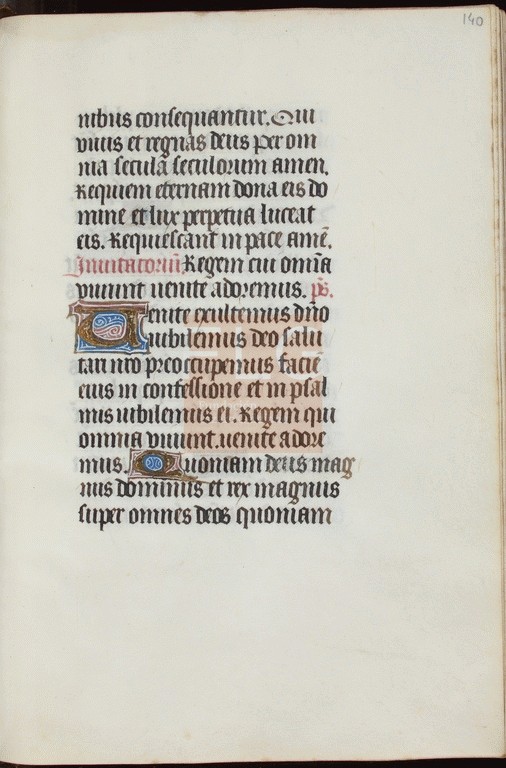 140
nibus consequantur. Qui
viuis et regnas deus per om
nia secula seculorum amen.
Requiem eternam dona eis do
mine et lux perpetua luceat
eis. Requiescant in pace amē.
Inuitatoriū. Regem cui om̄ia
viuunt uenite adoremus. ps.
Uenite exultemus dn̄o
iubilemus deo salu
tari nr̄o preoccupemus faciē
eius in confessione et in psal
mis iubilemus ei. Regem qui
omnia viuunt. uenite adore
mus. Quoniam deus mag
nus dominus et rex magnus
super omnes deos quoniam